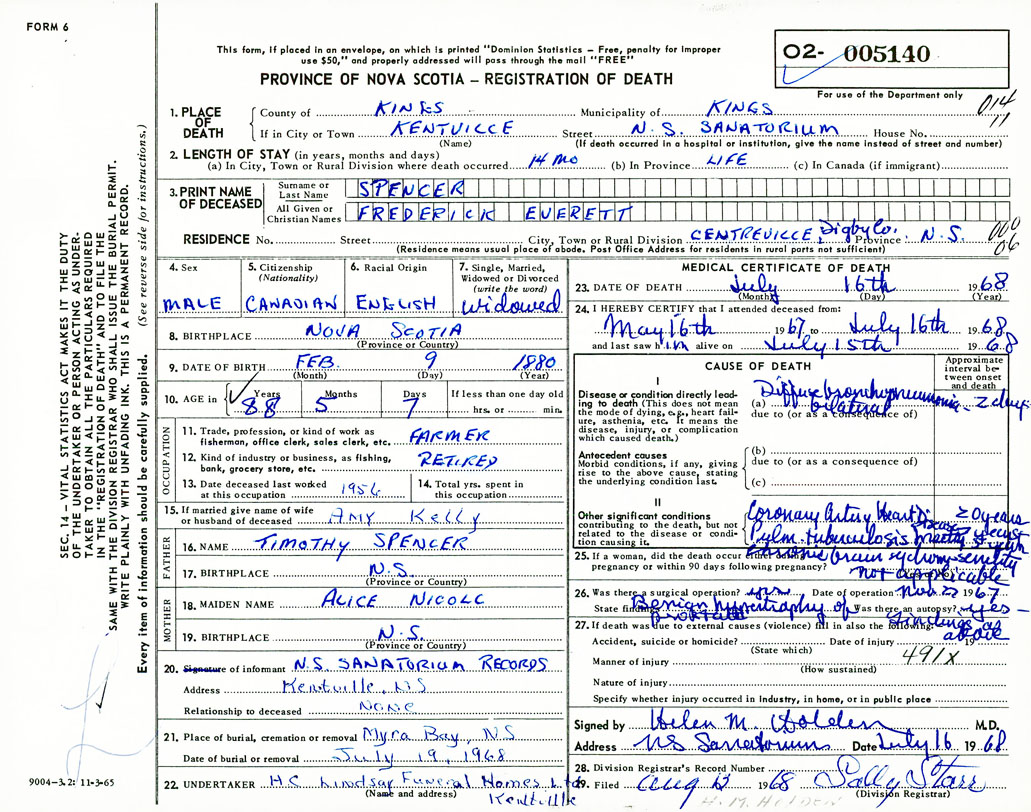 FORM 6
This form, if placed in an envelope, on which is printed "Dominion Statistics – Free, penalty for improper
use $50," and properly addressed will pass through the mail "FREE"
PROVINCE OF NOVA SCOTIA – REGISTRATION OF DEATH
02- 005140
For use of the Department only
014
11
1. PLACE OF DEATH
County of KINGS Municipality of KINGS
If in City or Town KENTVILLE Street N.S. SANATORIUM House No.
(Name) (If death occurred in a hospital or institution, give the name instead of street and number)
2. LENGTH OF STAY (in years, months and days)
(a) In City, Town or Rural Division where death occurred 14 MO (b) In Province LIFE (c) In Canada (if immigrant)
3. PRINT NAME OF DECEASED
Surname or Last Name SPENCER
All Given or Christian Names FREDERICK EVERETT
RESIDENCE No. Street City, Town or Rural Division CENTREVILLE, Digby Co. Province N.S.
(Residence means usual place of abode. Post Office Address for residents in rural parts not sufficient)
000
06
4. Sex MALE
5. Citizenship (Nationality) CANADIAN
6. Racial Origin ENGLISH
7. Single, Married, Widowed or Divorced (write the word) Widowed
8. BIRTHPLACE NOVA SCOTIA
(Province or Country)
9. DATE OF BIRTH FEB. 9 1880
(Month) (Day) (Year)
10. AGE in Years 88 Months 5 Days 7 If less than one day old hrs. or min.
OCCUPATION
11. Trade, profession, or kind of work as fisherman, office clerk, sales clerk, etc. FARMER
12. Kind of industry or business, as fishing, bank, grocery store, etc. RETIRED
13. Date deceased last worked at this occupation 1956
14. Total yrs. spent in this occupation
15. If married give name of wife or husband of deceased Amy Kelly
FATHER
16. NAME TIMOTHY SPENCER
17. BIRTHPLACE N.S.
(Province or Country)
MOTHER
18. MAIDEN NAME ALICE NICOLL
19. BIRTHPLACE N.S.
(Province or Country)
20. Signature of informant N.S. SANATORIUM RECORDS
Address Kentville, NS
Relationship to deceased NONE
21. Place of burial, cremation or removal Myra Bay, NS
Date of burial or removal July 19, 1968
22. UNDERTAKER H.C. Lindsay Funeral Homes Ltd
(Name and address) Kentville
MEDICAL CERTIFICATE OF DEATH
23. DATE OF DEATH July 16th 1968
(Month) (Day) (Year)
24. I HEREBY CERTIFY that I attended deceased from:
May 16th 1967 to July 16th 1968
and last saw him alive on July 15th 1968
CAUSE OF DEATH
Approximate interval between onset and death
I
Disease or condition directly leading to death (This does not mean the mode of dying, e.g., heart failure, asthenia, etc. It means the disease, injury, or complication which caused death.)
(a) Diffuse bronchopneumonia - 2 days
bilateral
due to (or as a consequence of)
Antecedent causes
Morbid conditions, if any, giving rise to the above cause, stating the underlying condition last.
(b)
due to (or as a consequence of)
(c)
II
Other significant conditions contributing to the death, but not related to the disease or condition causing it.
Coronary Artery Heart Disease 20 years
Pulm. tuberculosis
chronic brain syndrome, senility
25. If a woman, did the death occur either during pregnancy or within 90 days following pregnancy? not applicable
26. Was there a surgical operation? yes Date of operation Nov. 27 1967
State findings Benign hypertrophy of prostate Was there an autopsy? yes –
findings as above
27. If death was due to external causes (violence) fill in also the following:
Accident, suicide or homicide? Date of injury 19
(State which)
Manner of injury 491X
(How sustained)
Nature of injury
Specify whether injury occurred in Industry, in home, or in public place
Signed by Helen M. Holden M.D.
Address NS Sanatorium Date July 16 1968
28. Division Registrar's Record Number
29. Filed Aug 13 1968 Sally Starr
(Division Registrar)
H. M. HOLDEN
SEC. 14 – VITAL STATISTICS ACT MAKES IT THE DUTY
OF THE UNDERTAKER OR PERSON ACTING AS UNDER-
TAKER TO OBTAIN ALL THE PARTICULARS REQUIRED
IN THE "REGISTRATION OF DEATH" AND TO FILE THE
SAME WITH THE DIVISION REGISTRAR WHO SHALL ISSUE THE BURIAL PERMIT.
WRITE PLAINLY WITH UNFADING INK. THIS IS A PERMANENT RECORD.
Every item of information should be carefully supplied. (See reverse side for instructions.)
9004-3.2: 11-3-65